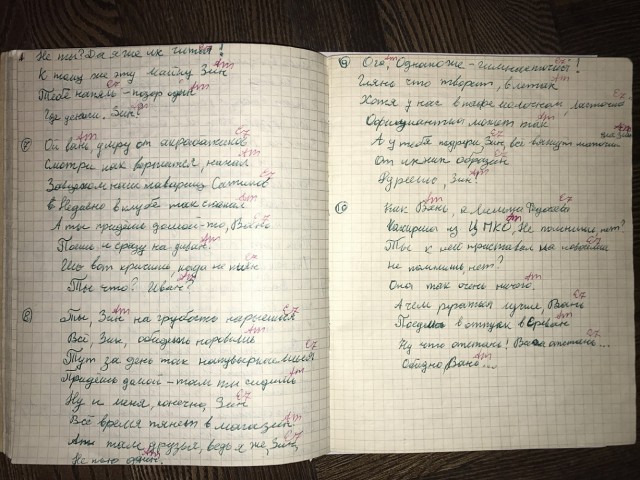 Не ты? Да я не
К тому же эту майку, Зин
Тебе напяль - позор один
Где деньги, Зин?
⑦ Ой Вань, умру от акробатиков
Смотри как вертится, нахал
Завцехом наш товарищ Сатиков
Недавно в клубе так скакал
А ты придёшь домой-то, Вань
Поешь и сразу на диван
Иль вот кричишь, когда не пьян
Ты что? Иван?
⑧ Ты, Зин на грубость нарываешься
Всё, Зин, обидеть норовишь
Тут за день так накувыркаешься
Придёшь домой - там ты сидишь
Ну и меня, конечно, Зин
Всё время тянет в магазин
А там друзья, ведь я же, Зин
Не пью один.
⑨ Ого, Однако же - гимнасточка!
Глянь что творит, в летах
Хотя у нас в кафе молочном ласточка
Официантки может так
А у тебя подруги, Зин, всё вяжут
От ихних образин
Дуреешь, Зин!
⑩ Как Вань, а Лилька Федосеева
Кассирша из ЦПКО, Не помнишь, нет?
Ты к ней приставал на новоселье
Не помнишь, нет?
Она так очень ничего.
А чем ругаться лучше, Вань
Поедем в отпуск в Ереван
Ну что отстань! Всегда отстань...
Обидно, Вань...
Am E7